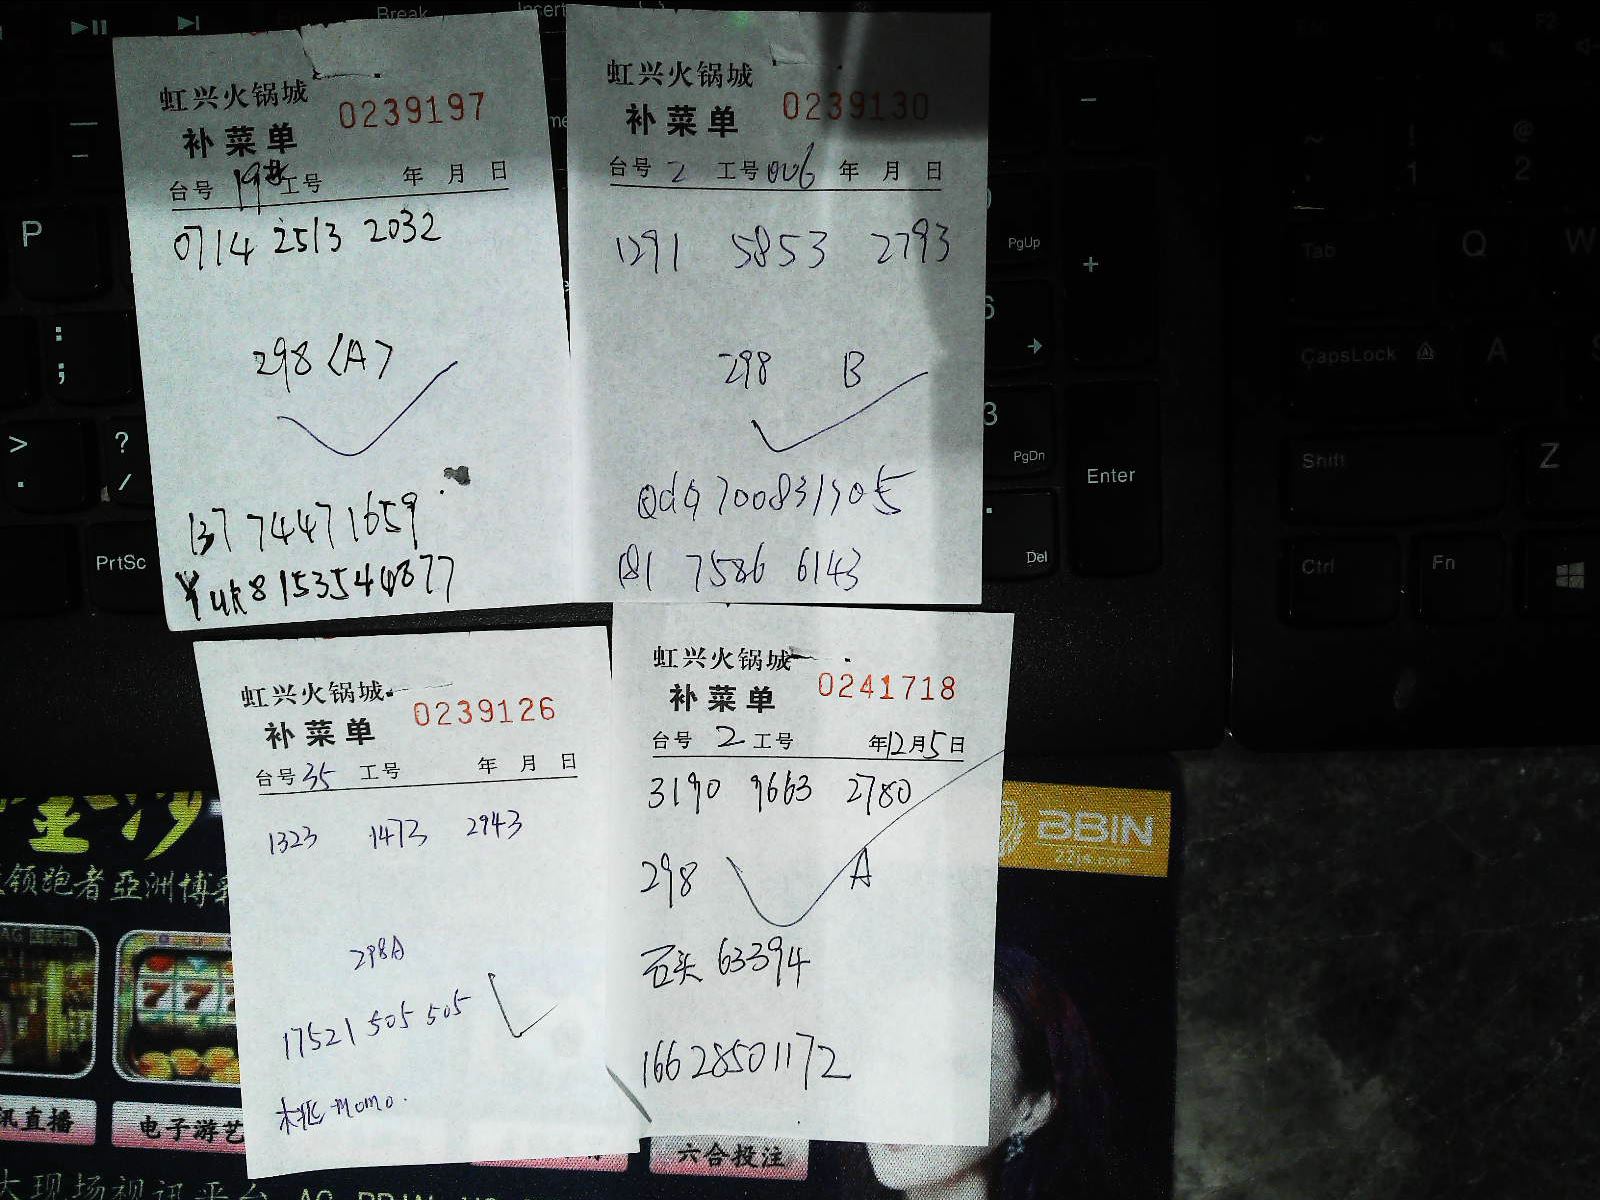 虹兴火锅城
0239197
补菜单
台号 19# 工号 年 月 日
0714 2513 2032
298 <A>
137 74471659
8153544877
虹兴火锅城
0239130
补菜单
台号 2 工号 006 年 月 日
1291 5853 2793
298 B
181 7586 6143
虹兴火锅城
0239126
补菜单
台号 35 工号 年 月 日
1323 1473 2943
298A
17521 505 505
桃 momo.
虹兴火锅城
0241718
补菜单
台号 2 工号 年12月5日
3190 9663 2780
298 A
石头 63394
166 28501172
Break
Insert
P
:
;
>
.
?
/
PrtSc
PgUp
+
6
3
PgDn
Enter
Del
Tab
Q
W
CapsLock
A
Shift
Z
Ctrl
Fn
@
2
!
1
BBIN
22js.com
领跑者亞洲博
AG 国际馆
777
讯直播
电子游艺
六合投注
大现场视讯平台